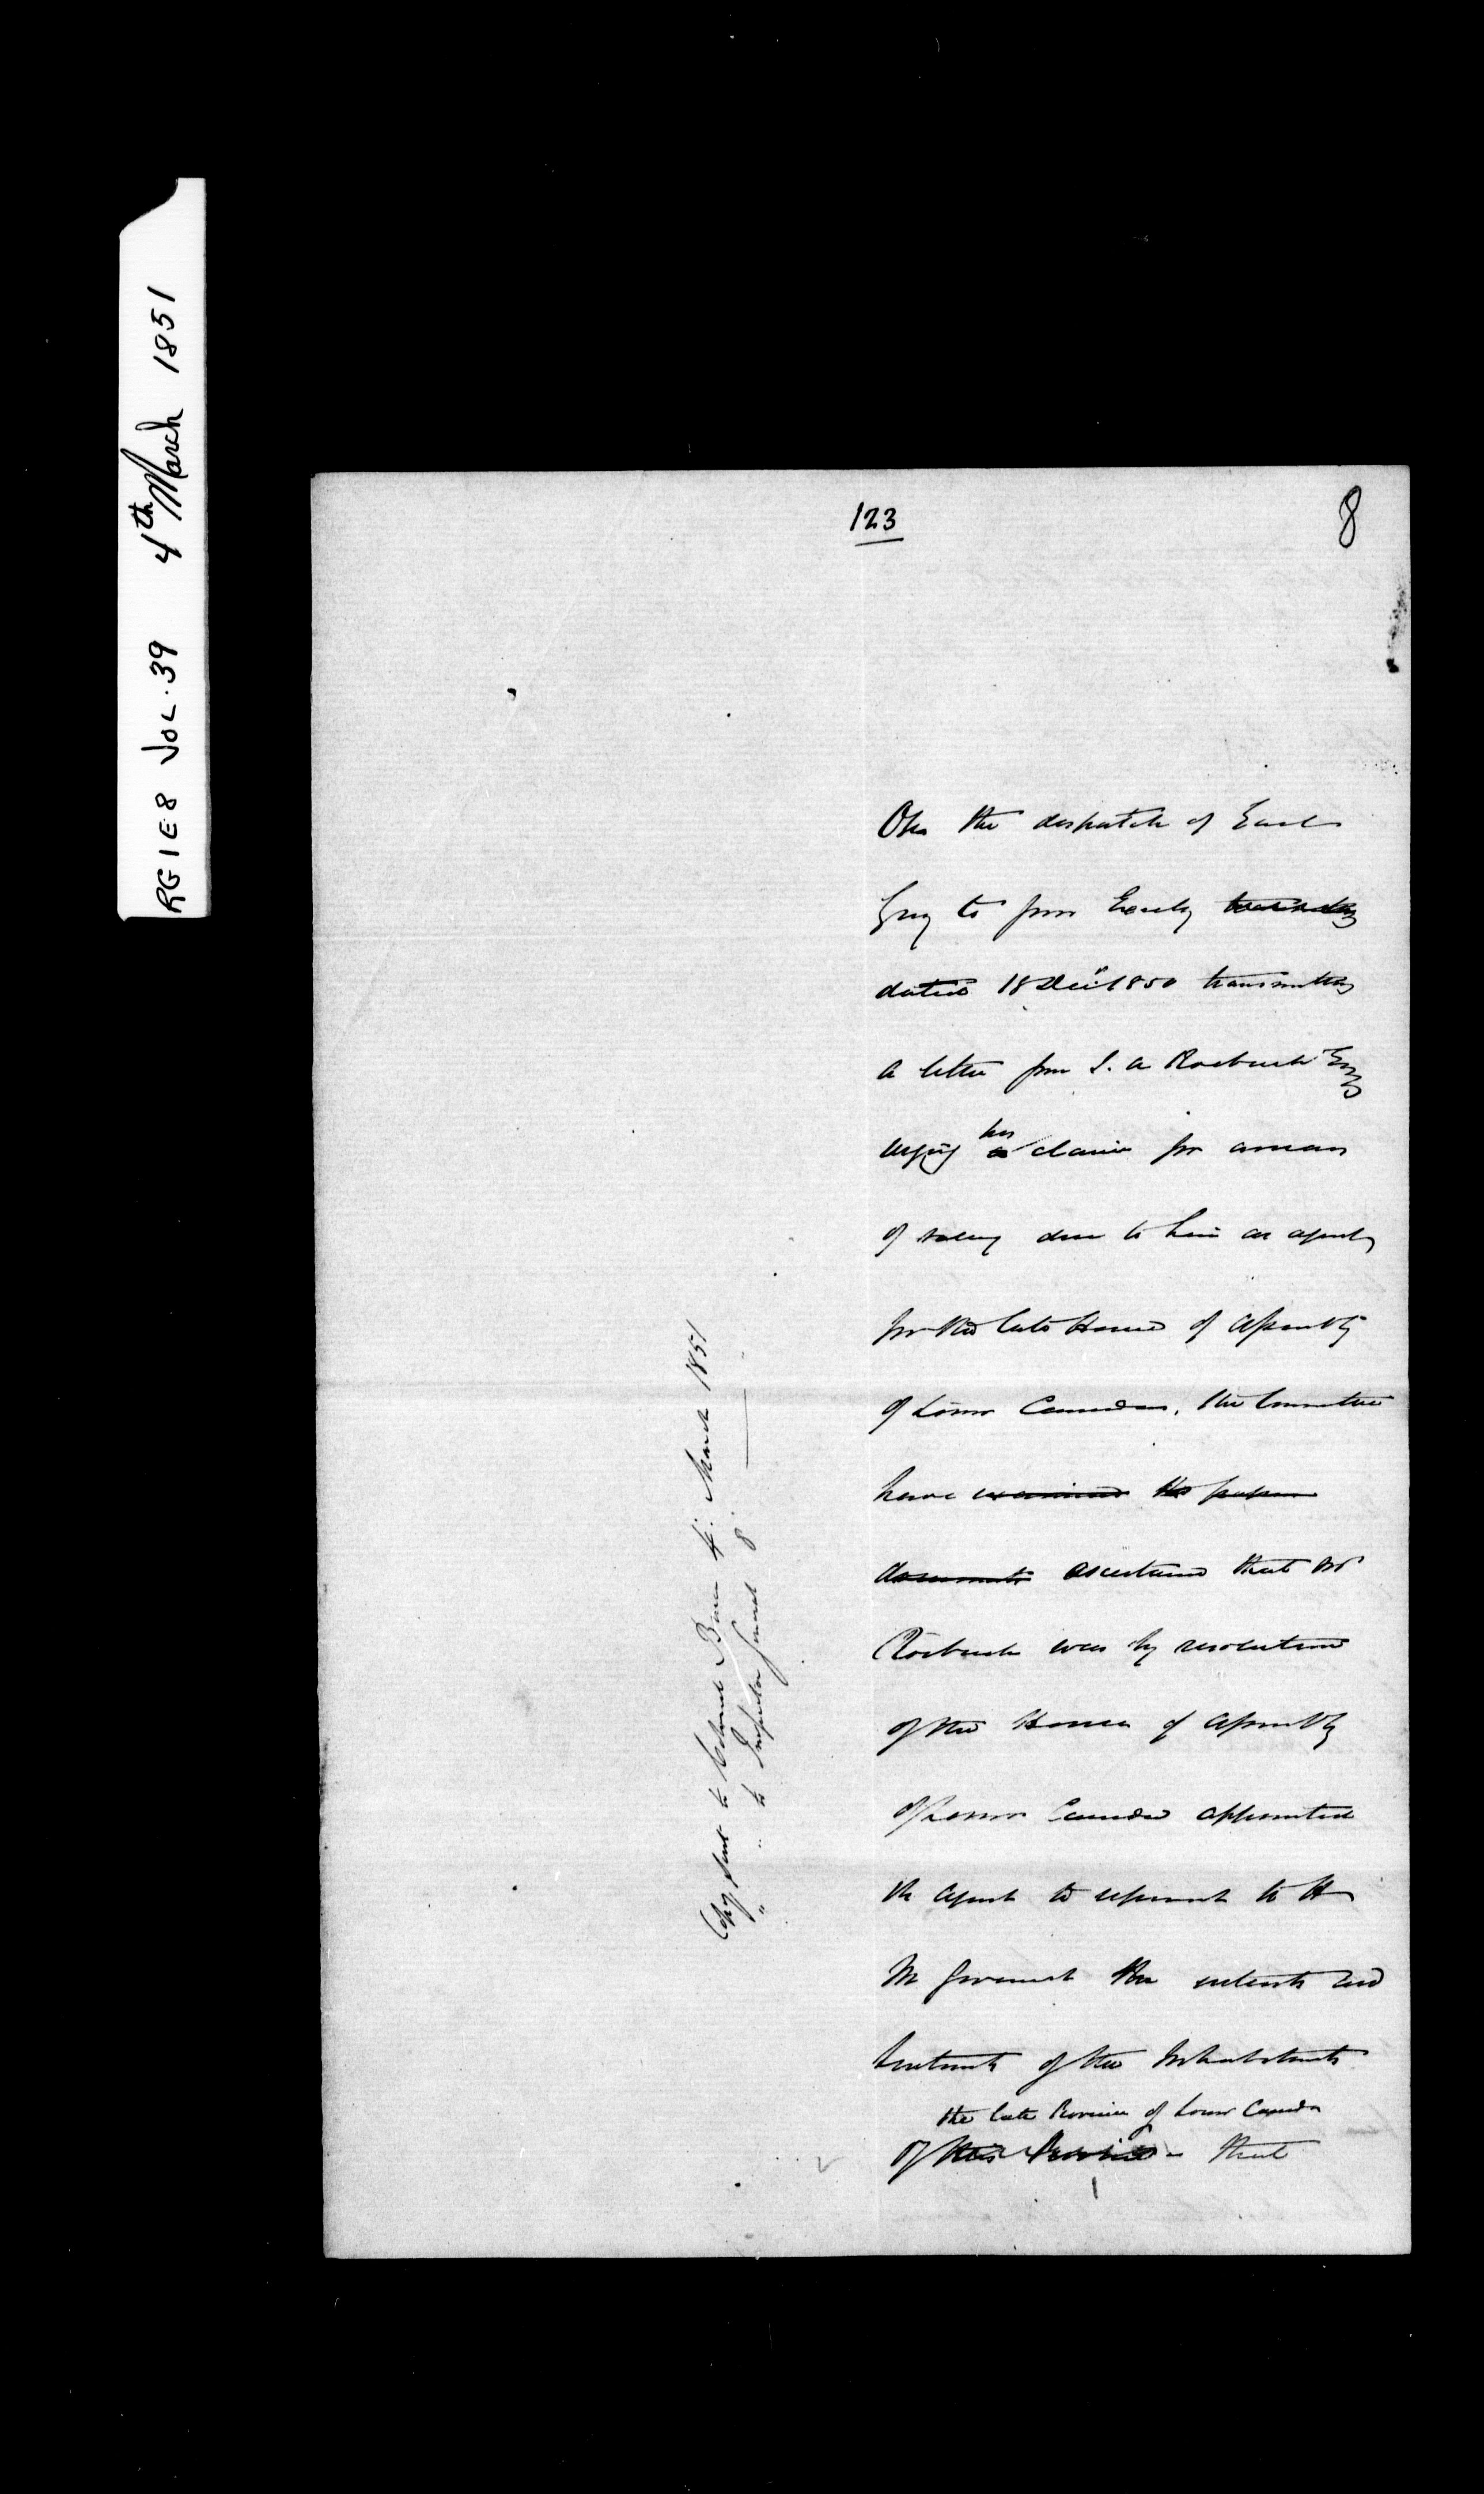 RG 1 E 8 VOL. 39 4th March 1851
123
8
On the despatch of Earl
Grey to your Excely
dated 18 Decr 1850 transmitting
a letter from J. A Roebuck Esqr
urging his a claim for arrears
of salary due to him as agent
for the late House of Assembly
of Lower Canada, the Committee
have examined the papers
documents ascertained that Mr
Roebuck was by resolution
of the House of Assembly
of Lower Canada appointed
the agent to represent to the
Im Government the interests and
sentiments of the Inhabitants
the late Province of Lower Canada
of this Province that
Copy sent to Colonel Bruce 4: March 1851
" " to Inspector General 8 "